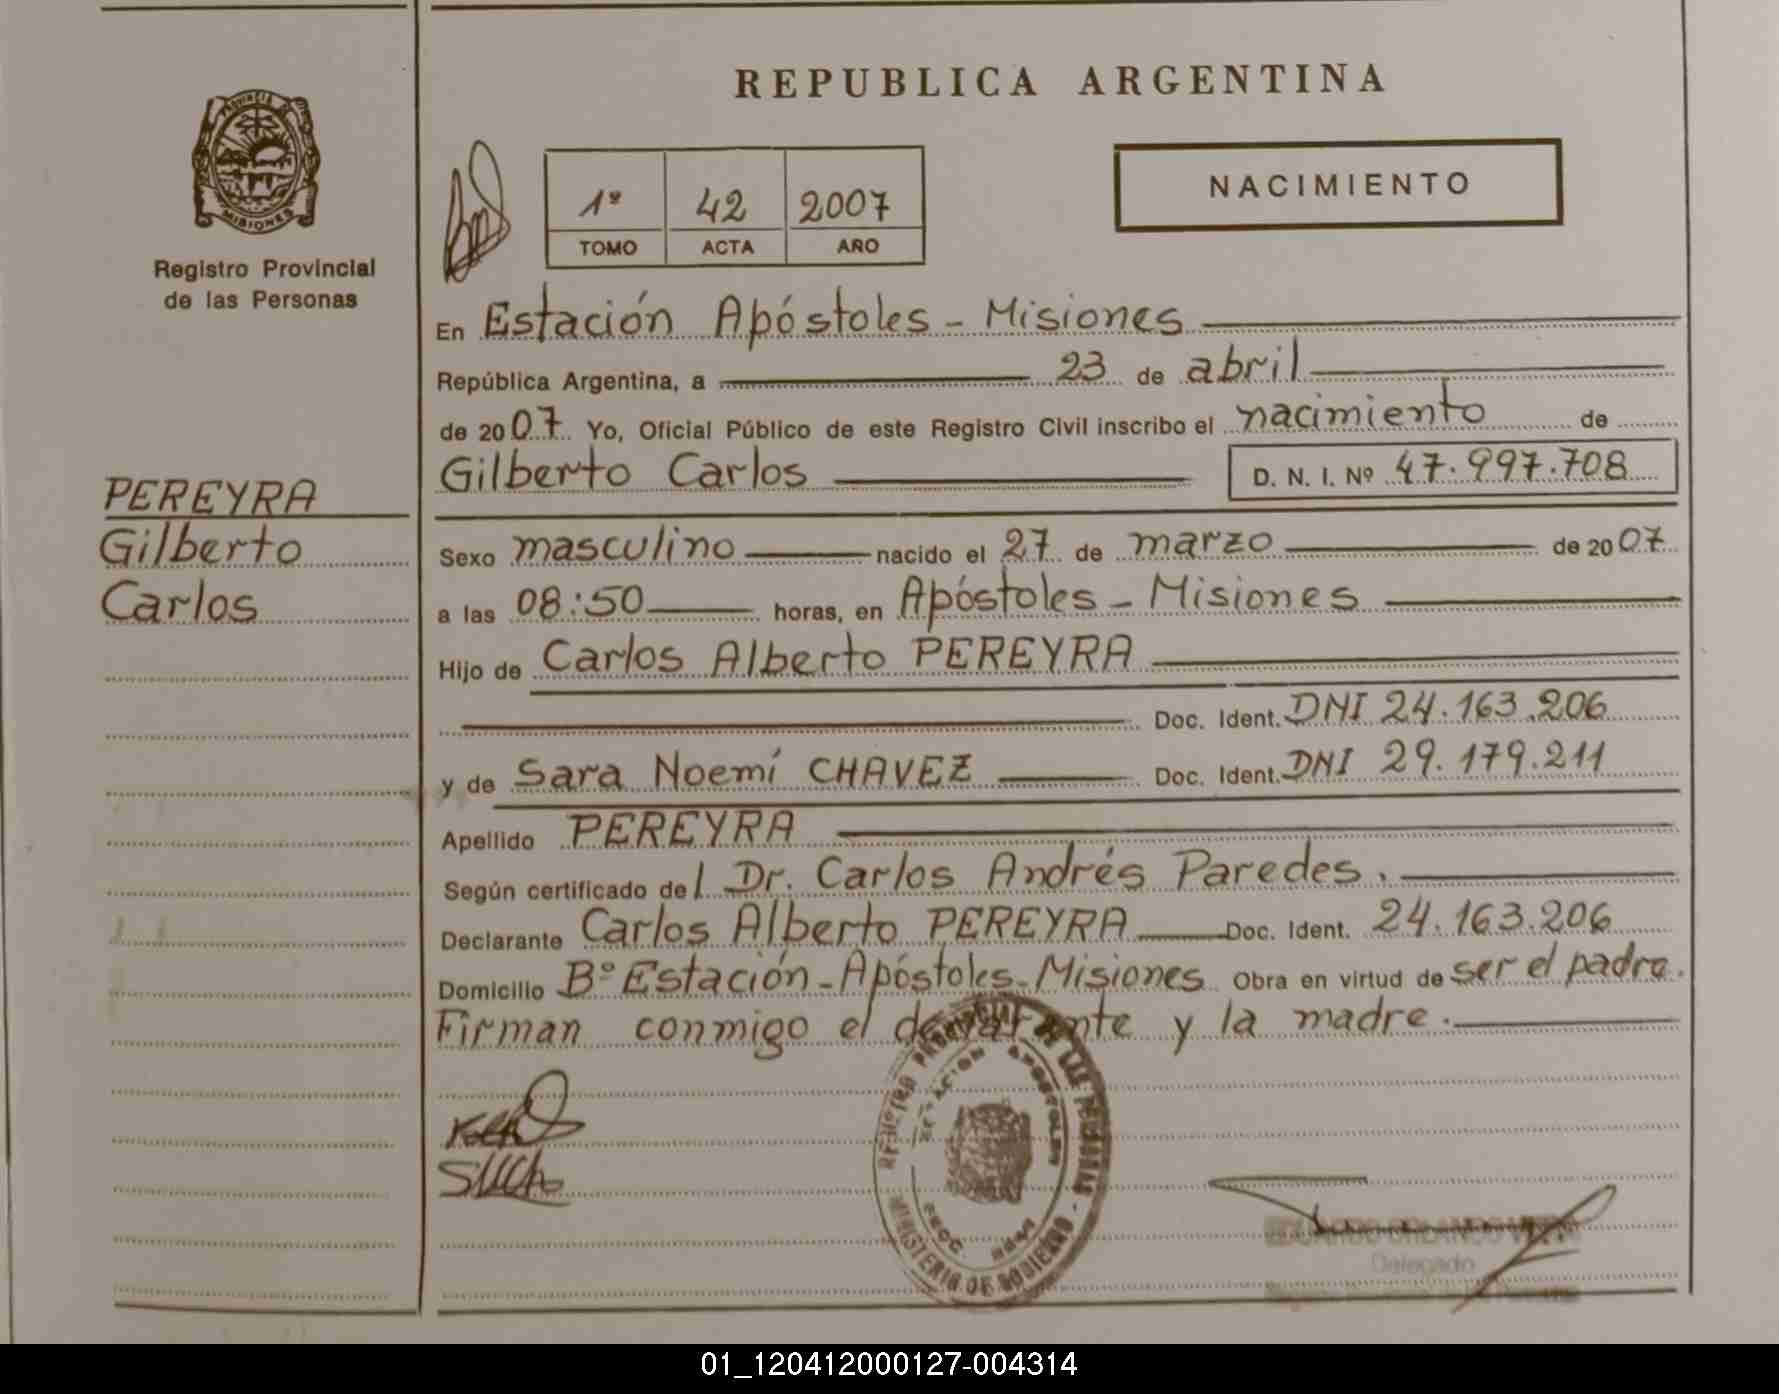 REPUBLICA ARGENTINA
PROVINCIA DE MISIONES
Registro Provincial
de las Personas
1º 42 2007
TOMO ACTA AÑO
NACIMIENTO
En Estación Apóstoles - Misiones
República Argentina, a 23 de abril
de 2007 Yo, Oficial Público de este Registro Civil inscribo el nacimiento de
Gilberto Carlos D. N. I. Nº 47.997.708
PEREYRA
Gilberto
Carlos
Sexo masculino nacido el 27 de marzo de 2007
a las 08:50 horas, en Apóstoles - Misiones
Hijo de Carlos Alberto PEREYRA
Doc. Ident. DNI 24.163.206
y de Sara Noemí CHAVEZ Doc. Ident. DNI 29.179.211
Apellido PEREYRA
Según certificado del Dr. Carlos Andrés Paredes.
Declarante Carlos Alberto PEREYRA Doc. Ident. 24.163.206
Domicilio Bº Estación - Apóstoles - Misiones Obra en virtud de ser el padre.
Firman conmigo el declarante y la madre.
REGISTRO PROVINCIAL DE LAS PERSONAS
ESTACION APOSTOLES
MINISTERIO DE GOBIERNO
EDUARDO ORLANDO
Delegado
01_120412000127-004314